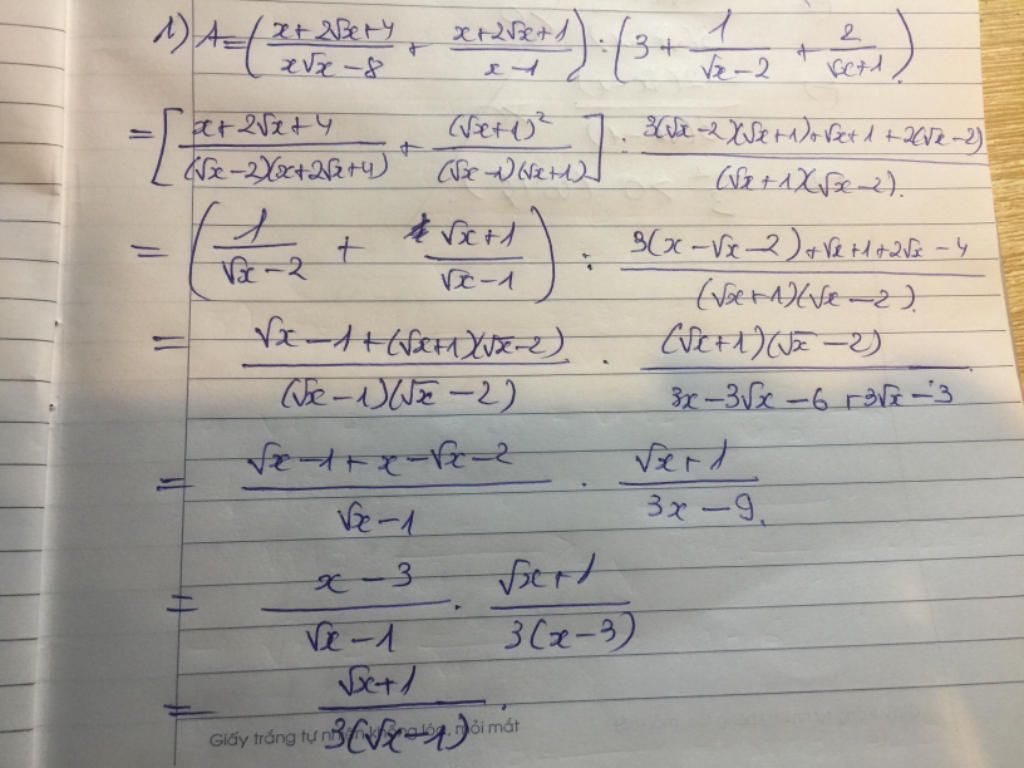 1) A = ( (x+2√x+4)/(x√x−8) + (x+2√x+1)/(x−1) ) : ( 3 + 1/(√x−2) + 2/(√x+1) ).
= [ (x+2√x+4)/((√x−2)(x+2√x+4)) + (√x+1)²/((√x−1)(√x+1)) ] : (3(√x−2)(√x+1)+√x+1+2(√x−2))/((√x+1)(√x−2)).
= ( 1/(√x−2) + (√x+1)/(√x−1) ) : (3(x−√x−2)+√x+1+2√x−4)/((√x+1)(√x−2)).
= (√x−1+(√x+1)(√x−2))/((√x−1)(√x−2)) . ((√x+1)(√x−2))/(3x−3√x−6+3√x−3)
= (√x−1+x−√x−2)/(√x−1) . (√x+1)/(3x−9).
= (x−3)/(√x−1) . (√x+1)/(3(x−3))
= (√x+1)/(3(√x−1)).
Giấy trắng tự nhiên không lóa, mỏi mắt